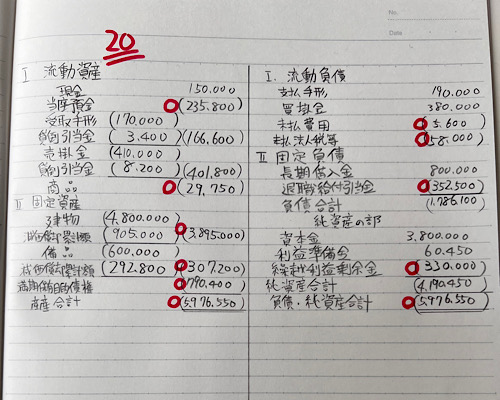 No.
Date
20
I 流動資産
現金 150.000
当座預金 (235.800)
受取手形 (170.000)
貸倒引当金 (3.400) (166,600)
売掛金 (410.000)
貸倒引当金 (8.200) (401,800)
商品 (29,750)
II 固定資産
建物 (4.800.000)
減価償却累計額 (905.000) (3.895.000)
備品 (600.000)
減価償却累計額 (292.800) (307.200)
満期保有目的債権 (790.400)
資産合計 (5.976.550)
I. 流動負債
支払手形 190.000
買掛金 380.000
未払費用 (5.600)
未払法人税等 (58.000)
II 固定負債
長期借入金 800.000
退職給付引当金 (352,500)
負債合計 (1.786,100)
純資産の部
資本金 3.800.000
利益準備金 60.450
繰越利益剰余金 (330.000)
純資産合計 (4,190.450)
負債・純資産合計 (5,976.550)